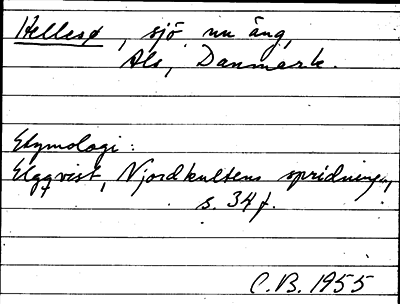 Hellesø, sjö nu äng,
Als, Danmark.
Etymologi:
Elgqvist, Njordkultens spridning,
s. 34 f.
C.B. 1955